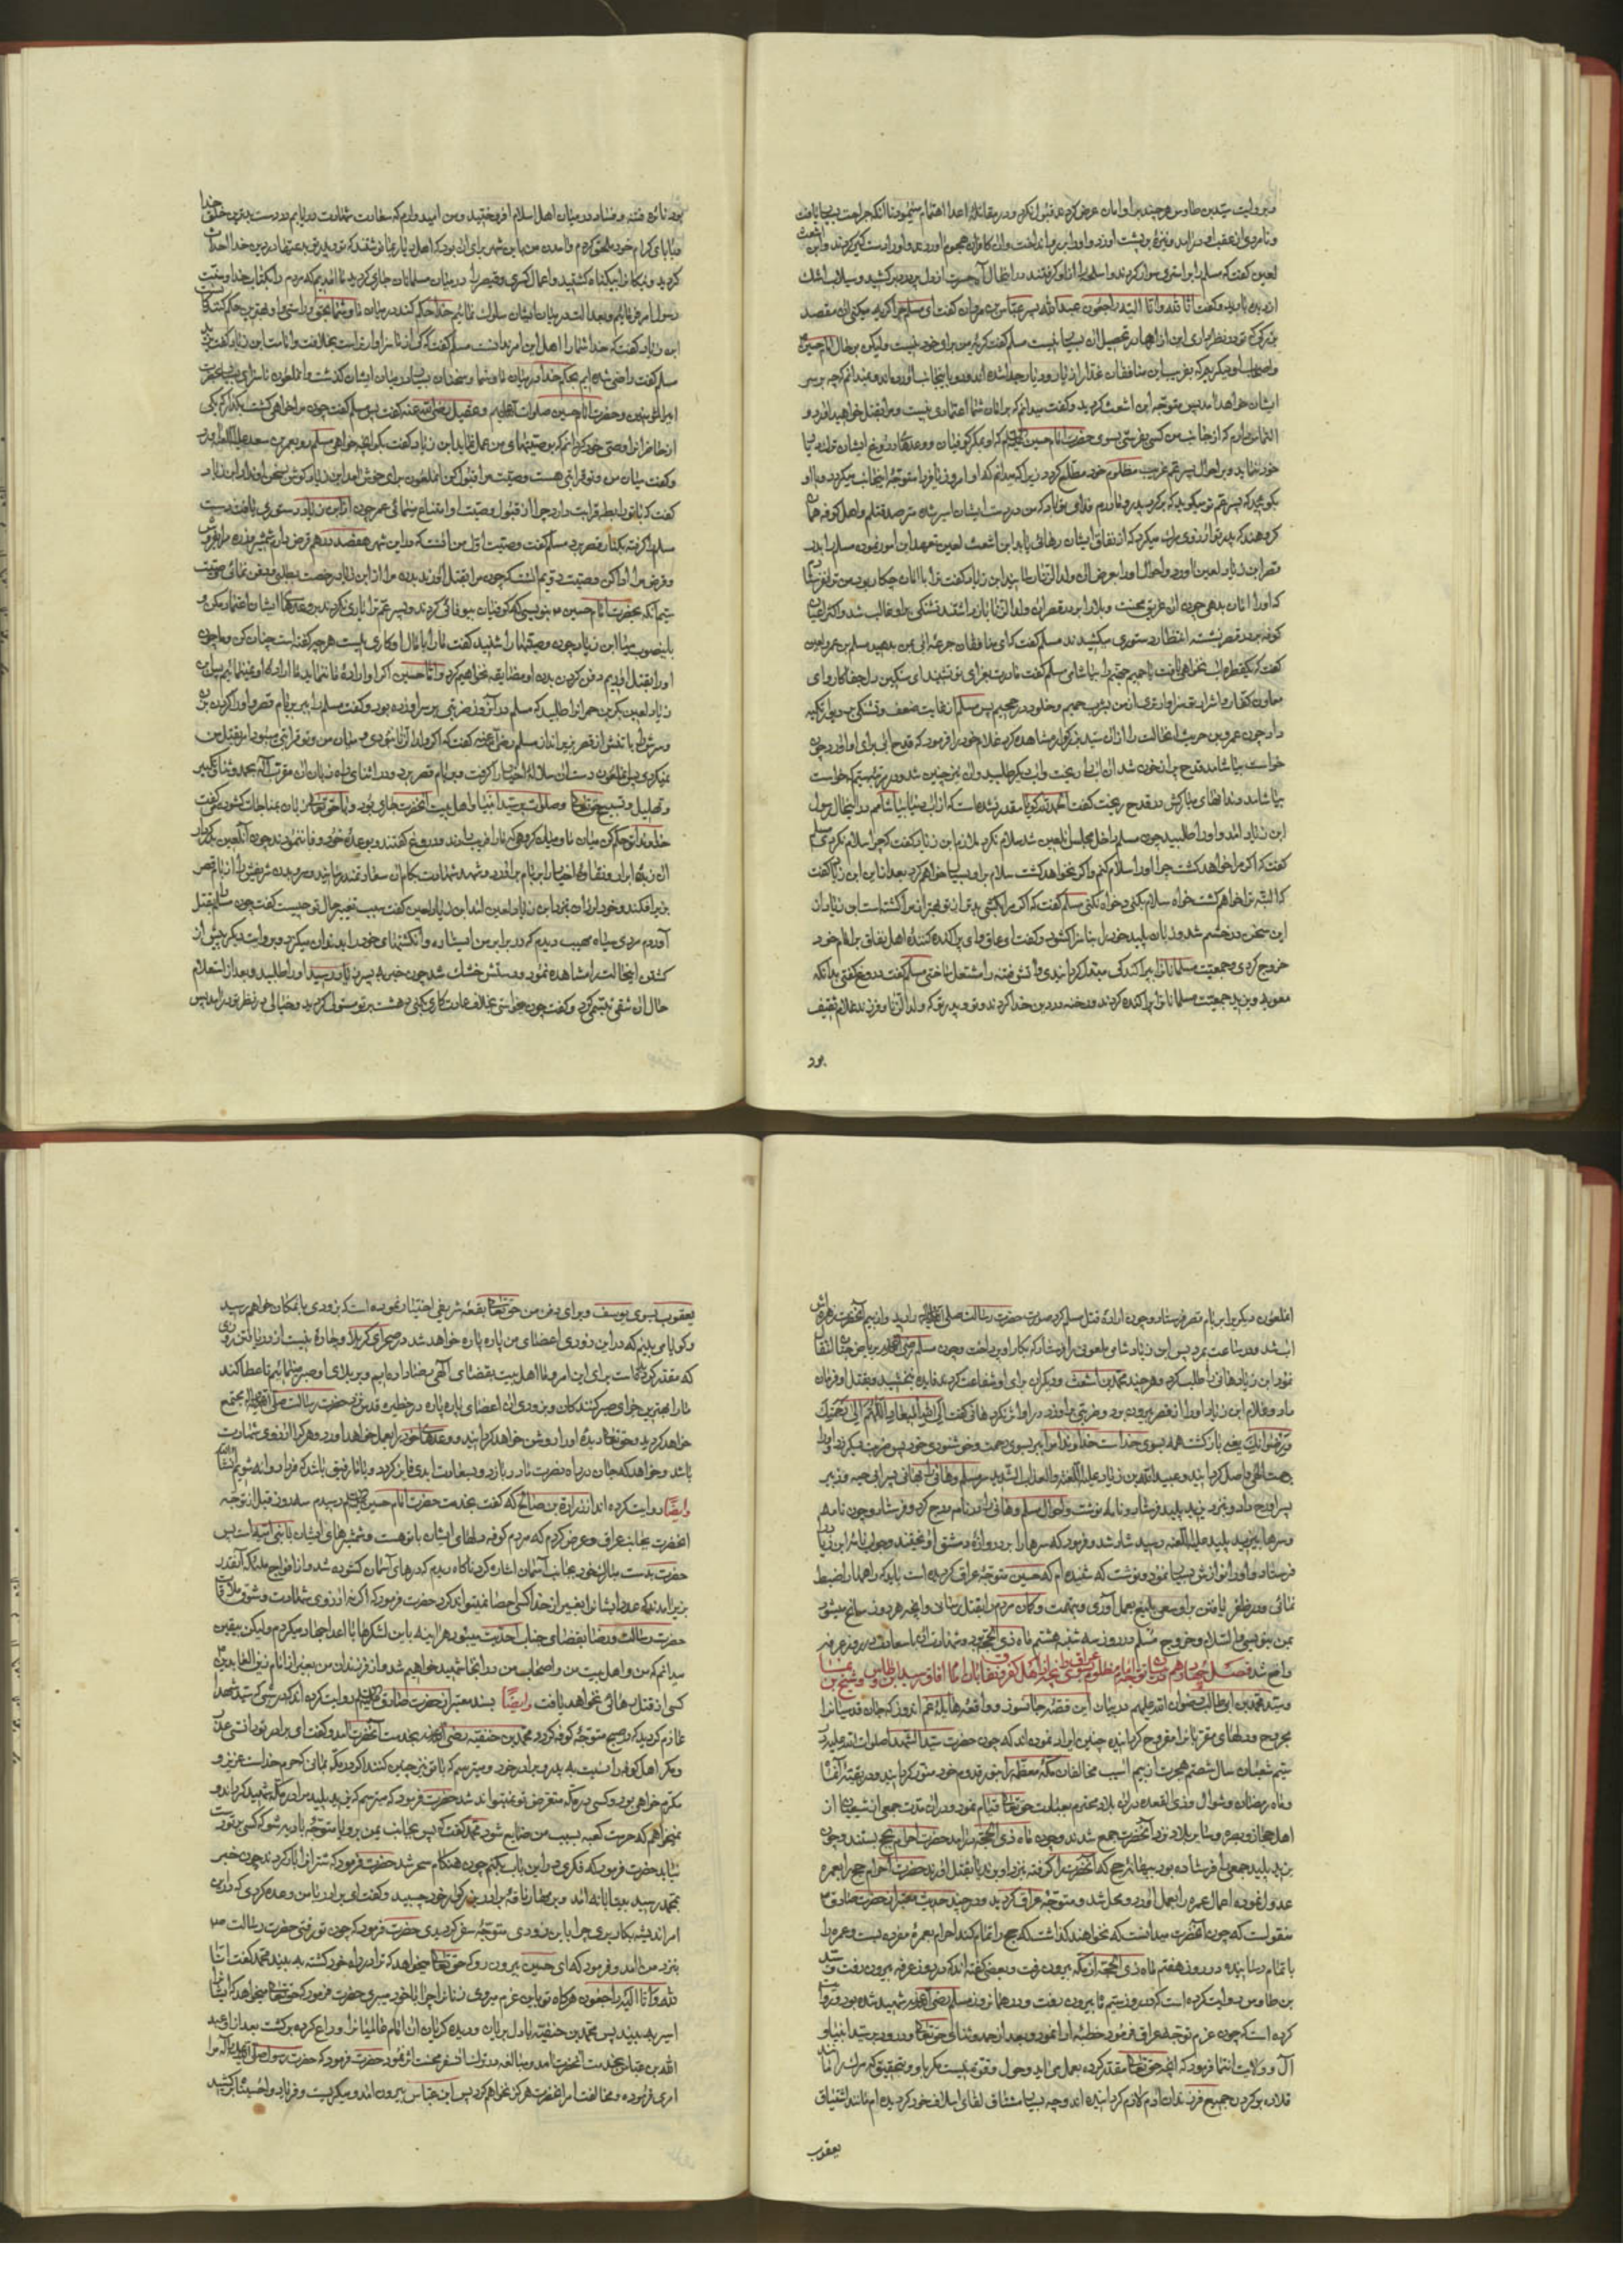 و بروایت سید بن طاوس هر چند بر او امان عرض کردند قبول نکرد و در مقاتله اعدا اهتمام مینمود تا آنکه جراحت بسیار یافت
و نامردی از عقب او در آمد و نیزه بر پشت او زد و او را بر رو انداخت و آن کافران هجوم آوردند و او را دستگیر کردند و ابن اشعث
لعین گفت که مسلم را بر استری سوار کردند و اسلحه را از او گرفتند در آن حال آه حسرت از دل پر درد برکشید و سیلاب اشک
از دیده بارید و گفت انا لله و انا الیه راجعون عبید الله پسر عباس گفت ای مسلم چرا گریه میکنی آن مقصد
بزرگی که تو در نظر داری این آزارها در تحصیل آن بسیار نیست مسلم گفت گریه من برای خود نیست و لیکن بر حال امام حسین
ایشان خواهد آمد پس متوجه ابن اشعث گردید و گفت میدانم که بر امان شما اعتمادی نیست و مرا بقتل خواهید آورد و
التماس دارم که از جانب من کسی بفرستی بسوی حضرت امام حسین که او بمکر کوفیان و وعده‌های دروغ ایشان ترک دیار
بگوید که پسر عمت میگوید که برگرد پدر و مادرم فدای تو باد که من در دست ایشان اسیر شدم و مترصد قتلم و اهل کوفه همان
گروهند که پدر تو آرزوی مرگ میکرد که از نفاق ایشان رهائی یابد ابن اشعث لعین تعهد این امور نمود مسلم را بدر
قصر ابن زیاد لعین آورد و احوال او را بعرض آن ولد الزنا رسانید ابن زیاد گفت ترا با امان چکار بود من ترا نفرستادم
که او را امان بدهی چون آن غریق محنت و بلا را بر در قصر آن ولد الزنا باز داشتند تشنگی بر او غالب شد و اکثر اعیان
کوفه بر در قصر نشسته انتظار دستوری میکشیدند مسلم گفت که ای منافقان جرعه آبی بمن بدهید مسلم بن عمرو لعین
گفت که یکقطره آب نخواهی یافت تا حمیم جهنم را بیاشامی مسلم گفت مادرت بعزای تو نشیند ای سنگین دل جفاکار
دادند چون عمرو بن حریث این حالت را از آن سید بزرگوار مشاهده کرد غلام خود را فرمود که قدح آبی برای او آورد چون
خواست بیاشامد قدح پر از خون شد آن آب را ریخت و آب دیگر طلبید و آن نیز چنین شد در مرتبه سیم که خواست
بیاشامد دندانهای مبارکش در قدح ریخت گفت الحمد لله گویا مقدر نشده است که از آب دنیا بیاشامم در آنحال رسول
ابن زیاد آمد و او را طلبید چون مسلم داخل مجلس آن لعین شد سلام نکرد ملازم ابن زیاد گفت که چرا سلام نکردی مسلم
گفت که اگر مرا خواهد کشت چرا او را سلام کنم و اگر نخواهد کشت سلام بر او بسیار خواهم کرد بعد از این ابن زیاد گفت
که البته ترا خواهم کشت خواه سلام بکنی و خواه نکنی مسلم گفت که اگر مرا بکشی بدتر از تو بهتر از مرا کشته است ابن زیاد از
این سخن در خشم شد و زبان پلید خود را بناسزا گشود و گفت ای عاق و ای پراکنده کننده اهل نفاق بر امام خود
خروج کردی و جمعیت مسلمانان را پراکندگی مبدل گردانیدی و آتش فتنه را مشتعل ساختی مسلم گفت دروغ گفتی بدانکه
معویه و یزید جمعیت مسلمانان را پراکنده کردند و رخنه در دین خدا کردند و تو و پدر تو که ولد الزنا و فرزند غلام ثقیف
بود
بود نائره فتنه و فساد در میان اهل اسلام افروختید و من امید دارم که سعادت شهادت دریابم در دست بدترین خلق خدا
رسول امر نمائیم و بعدالت در میان ایشان سلوک نمائیم خدا حکم کند در میان ما و شما بحق و راستی و او بهترین حکم کنندگانست
مسلم گفت راضی شده‌ایم بحکم خدا در میان ما و شما و سخنان بسیار در میان ایشان گذشت و آن ملعون ناسزای بسیار بحضرت
امیر المؤمنین و حضرت امام حسین صلوات الله علیهم و عقیل رضی الله عنه گفت پس مسلم گفت چون مرا خواهی کشت بگذار که یکی
از حاضران را وصی خود گردانم که بوصیتهای من عمل نماید ابن زیاد گفت بگو آنچه خواهی مسلم رو بعمر بن سعد علیه اللعنه آورد
و گفت میان من و تو قرابتی هست وصیت مرا قبول کن آن ملعون برای خوش آمد ابن زیاد گوش بسخن او نداد ابن زیاد
گفت که با تو رابطه قرابت دارد چرا از قبول وصیت او امتناع مینمائی عمر چون از ابن زیاد دستوری یافت دست
مسلم را گرفته بکنار قصر برد مسلم گفت وصیت اول من آنست که در این شهر هفتصد درهم قرض دارم شمشیر و زره مرا بفروش
و قرض مرا ادا کن وصیت دویم آنست که چون مرا بقتل آورند بدن مرا از ابن زیاد رخصت بطلبی و دفن نمائی وصیت
سیم آنکه بحضرت امام حسین بنویسی که کوفیان بیوفائی کردند و پسر عم ترا یاری نکردند بر وعده‌های ایشان اعتماد مکن و
زیاد لعین بکر بن حمران را طلبید که مسلم در آنروز ضربتی بر سر او زده بود و گفت مسلم را ببر بر بام قصر و او را گردن بزن
و تهلیل و تسبیح حق تعالی و صلوات بر سید انبیا و اهل بیت آنحضرت جاری بود و با حق تعالی زبان بمناجات گشوده گفت
خداوندا تو حکم کن میان ما و میان گروهی که ما را فریب دادند و دروغ گفتند و بوعده خود وفا ننمودند چون آن لعین
بزیر افکند و خود لرزان بنزد ابن زیاد لعین آمد ابن زیاد لعین گفت سبب تغییر حال تو چیست گفت چون مسلم را بقتل
آوردم مردی سیاه مهیب دیدم که در برابر من ایستاده و انگشتهای خود را بدندان میگزید و بروایت دیگر پیش از
کشتن این حالت را مشاهده نمود و دستش خشک شد چون خبر به پسر زیاد رسید او را طلبید و بعد از استعلام
حال آن شقی تبسمی کرد و گفت چون خواستی بخلاف عادت کاری بکنی دهشت بر تو مستولی گردید و خیالی در نظر تو در آمد پس
آن ملعون دیگر را بر بام قصر فرستاد و چون اراده قتل مسلم کرد صورت حضرت رسالت صلی الله علیه و آله را دید و از بیم آنحضرت زهره‌اش
آب شد و در ساعت مرد پس ابن زیاد شامی ملعونی را فرستاد که بکار او پرداخت و چون مسلم رضی الله عنه بریاض جنان انتقال
نمود ابن زیاد هانی را طلب کرد و هر چند محمد بن اشعث و دیگران برای او شفاعت کردند فایده نبخشید و بقتل او فرمان
داد و غلام ابن زیاد او را از قصر بیرون برد و ضربتی بر او زد در او اثر نکرد هانی گفت الی الله المعاد اللهم الی رحمتک
و رضوانک یعنی بازگشت همه بسوی خداست خداوندا مرا ببر بسوی رحمت و خوشنودی خود پس ضربت دیگر زد و او را
برحمت الهی واصل گردانید و عبید الله بن زیاد علیه اللعنة و العذاب الشدید سر مسلم و هانی را بهانی پسر ابی حیه و زبیر
پسر اروح داد و بنزد یزید پلید فرستاد و نامه نوشت و احوال مسلم و هانی را در نامه درج کرد و فرستاد و چون نامه
و سرها بیزید پلید علیه اللعنه رسید شاد شد و فرمود که سرها را بر دروازه دمشق آویختند و جواب نامه ابن زیاد را
فرستاد و او را نوازش بسیار نمود و نوشت که شنیده‌ام که حسین متوجه عراق گردیده است باید که راهها را ضبط
نمائی و در ظفر یافتن بر او سعی بلیغ بعمل آوری و بتهمت و گمان مردم را بقتل رسانی و آنچه هر روز سانح میشود
بمن بنویسی و السلام و خروج مسلم در روز سه شنبه هشتم ماه ذی الحجه بود و شهادت آن با سعادت در روز عرفه
واقع شد فصل چهاردهم در بیان توجه امام مظلوم بسوی عراق
و سید محمد بن ابی طالب رضوان الله علیهم در بیان این قصه جانسوز و واقعه هایله غم اندوز که جان قدسیان را
مجروح و دلهای مقربان را مقروح گردانیده چنین ایراد نموده‌اند که چون حضرت سید الشهدا صلوات الله علیه در
سیم شعبان سال شصتم هجرت از بیم آسیب مخالفان مکه معظمه را بنور قدوم خود منور گردانید و در بقیه آنماه
و ماه رمضان و شوال و ذی القعده در آن بلده محترم بعبادت حق تعالی قیام نمود و در آن مدت جمعی از شیعیان از
اهل حجاز و بصره و سایر بلاد نزد آنحضرت جمع شدند و چون ماه ذی الحجه در آمد حضرت احرام بحج بستند و چون
یزید پلید جمعی را فرستاده بود ببهانه حج که آنحضرت را گرفته بنزد او برند یا بقتل آورند حضرت احرام حج را بعمره
عدول نموده اعمال عمره را بعمل آورد و محل شد و متوجه عراق گردید و در چند حدیث معتبر از حضرت صادق
منقولست که چون آنحضرت میدانست که نخواهند گذاشت که حج را تمام کند احرام بعمره مفرده بست و عمره را
باتمام رسانیده در روز هفتم ماه ذی الحجه از مکه بیرون رفت و بعضی گفته‌اند که در روز عرفه بیرون رفت و سید
بن طاوس روایت کرده است که در روز سیم ماه بیرون رفت و در همان روز مسلم رضی الله عنه شهید شده بود و روایت
کرده است که چون عزم توجه عراق فرمود خطبه ادا نمود و بعد از حمد و ثنای حق تعالی و درود بر سید انبیا و
آل و ولایت انتما فرمود که آنچه حق تعالی مقدر کرده بعمل می‌آید و حول و قوتی نیست مگر باو و بتحقیق که مرگ مانند
قلاده بر گردن جمیع فرزندان آدم لازم گردانیده‌اند و چه بسیار مشتاق لقای اسلاف خود گردیده‌ام مانند اشتیاق
یعقوب
یعقوب بسوی یوسف و برای دفن من حق تعالی بقعه شریفی اختیار نموده است که بزودی بآنمکان خواهم رسید
و گویا می‌بینم که در این زودی اعضای من پاره پاره خواهد شد در صحرای کربلا و چاره نیست از دریافتن روزی
که مقدر گردیده است برای این امر و ما اهل بیت بقضای الهی رضا داده‌ایم و بر بلای او صبر مینمائیم تا عطا کند
ما را بهترین جزای صبر کنندگان و بزودی آن اعضای پاره پاره در حظیره قدس نزد حضرت رسالت صلی الله علیه و آله مجتمع
خواهد گردید و حق تعالی دیده او را روشن خواهد گردانید و وعده‌های خود را بعمل خواهد آورد و هر که را آرزوی شهادت
باشد و خواهد که جان در راه نصرت ما در بازد و بسعادت ابدی فایز گردد و با ما رفیق باشد که فردا روانه شویم
و ایضاً روایت کرده‌اند از زراره بن صالح که گفت بخدمت حضرت امام حسین رسیدم سه روز قبل از توجه
آنحضرت بجانب عراق و عرض کردم که مردم کوفه دلهای ایشان با تو هست و شمشیرهای ایشان با بنی امیه است پس
حضرت بدست مبارک خود بجانب آسمان اشاره کرد ناگاه دیدم که درهای آسمان گشوده شد و از افواج ملائکه آنقدر
بزیر آمدند که عدد ایشان را بغیر از خدا کسی احصا نمیتواند کرد حضرت فرمود که اگر نه آرزوی شهادت و شوق ملاقات
حضرت رسالت و رضا بقضای جناب احدیت میبود هر آینه باین لشکرها با اعدا جهاد میکردم و لیکن بیقین
میدانم که من و اهل بیت من و اصحاب من در آنجا شهید خواهیم شد و از فرزندان من بغیر از امام زین العابدین
کسی از قتل رهائی نخواهد یافت و ایضاً بسند معتبر از حضرت صادق روایت کرده‌اند که در شبی که سید شهدا
عازم گردید که در صبح متوجه کوفه گردد محمد بن حنفیه رضی الله عنه بخدمت آنحضرت آمد و گفت ای برادر تو دانستی غدر
و مکر اهل کوفه را نسبت به پدر و برادر خود و میترسم که با تو نیز چنین کنند اگر در مکه بمانی که حرم خداست عزیز و
مکرم خواهی بود و کسی در مکه متعرض تو نمیتواند شد حضرت فرمود که میترسم که یزید پلید مرا در مکه شهید گرداند و
نمیخواهم که حرمت کعبه بسبب من ضایع شود محمد گفت که پس بجانب یمن برو یا متوجه بادیه شو که کسی بر تو دست
نیابد حضرت فرمود که فکری در این باب بکنم چون هنگام سحر شد حضرت فرمود که شتران را بار کردند چون خبر
بمحمد رسید بیتابانه آمد و بر مهار ناقه برادر بزرگوار خود چسبید و گفت ای برادر با من وعده کردی که در این
امر اندیشه بکار بری چرا باین زودی متوجه سفر گردیدی حضرت فرمود که چون تو رفتی حضرت رسالت
بنزد من آمد و فرمود که ای حسین بیرون رو که حق تعالی میخواهد که ترا در راه خود کشته به بیند محمد گفت انا
لله و انا الیه راجعون هر گاه تو باین عزم میروی زنان را چرا با خود میبری حضرت فرمود که حق تعالی میخواهد ایشان را
اسیر به بیند پس محمد بن حنفیه با دل بریان و دیده گریان آن امام عالمیان را وداع کرده برگشت بعد از آن عبد
الله بن عباس بخدمت آنحضرت آمد و مبالغه در ترک آن سفر محنت اثر نمود حضرت فرمود که حضرت رسول صلی الله علیه و آله مرا
امری فرموده و مخالفت امر آنحضرت هرگز نخواهم کرد پس ابن عباس بیرون آمد و میگریست و فریاد وا حسیناه برکشید